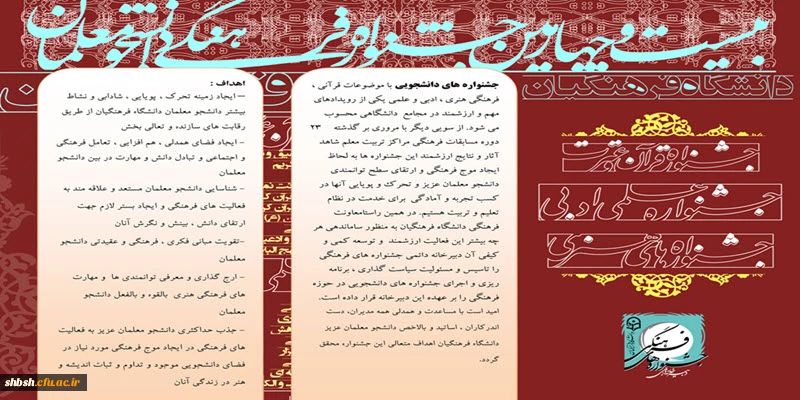 بیست و چهارمین جشنواره فرهنگی دانشجو معلمان
دانشگاه فرهنگیان
جشنواره قرآن و عترت
جشنواره علمی ادبی
جشنواره های هنری
جشنواره های فرهنگی
جشنواره های دانشجویی با موضوعات قرآنی ،
فرهنگی هنری ، ادبی و علمی یکی از رویدادهای
مهم و ارزشمند در مجامع دانشگاهی محسوب
می شود. از سویی دیگر با مروری بر گذشته ۲۳
دوره مسابقات فرهنگی مراکز تربیت معلم شاهد
آثار و نتایج ارزشمند این جشنواره ها به لحاظ
ایجاد موج فرهنگی و ارتقای سطح توانمندی
دانشجو معلمان عزیز و تحرک و پویایی آنها در
کسب تجربه و آمادگی برای خدمت در نظام
تعلیم و تربیت هستیم. در همین راستامعاونت
فرهنگی دانشگاه فرهنگیان به منظور ساماندهی هر
چه بیشتر این فعالیت ارزشمند و توسعه کمی و
کیفی آن دبیرخانه دائمی جشنواره های فرهنگی
را تاسیس و مسئولیت سیاست گذاری ، برنامه
ریزی و اجرای جشنواره های دانشجویی در حوزه
فرهنگی را بر عهده این دبیرخانه قرار داده است.
امید است با مساعدت و همدلی همه مدیران، دست
اندرکاران ، اساتید و بالاخص دانشجو معلمان عزیز
دانشگاه فرهنگیان اهداف متعالی این جشنواره، محقق
گردد.
اهداف :
– ایجاد زمینه تحرک ، پویایی ، شادابی و نشاط
بیشتر دانشجو معلمان دانشگاه فرهنگیان از طریق
رقابت های سازنده و تعالی بخش
- ایجاد فضای همدلی ، هم افزایی ، تعامل فرهنگی
و اجتماعی و تبادل دانش و مهارت در بین دانشجو
معلمان
- شناسایی دانشجو معلمان مستعد و علاقه مند به
فعالیت های فرهنگی و ایجاد بستر لازم جهت
ارتقای دانش ، بینش و نگرش آنان
-تقویت مبانی فکری ، فرهنگی و عقیدتی دانشجو
معلمان
- ارج گذاری و معرفی توانمندی ها و مهارت
های فرهنگی هنری بالقوه و بالفعل دانشجو
معلمان
- جذب حداکثری دانشجو معلمان عزیز به فعالیت
های فرهنگی در ایجاد موج فرهنگی مورد نیاز در
فضای دانشجویی موجود و تداوم و ثبات اندیشه و
هنر در زندگی آنان
shbsh.cfu.ac.ir